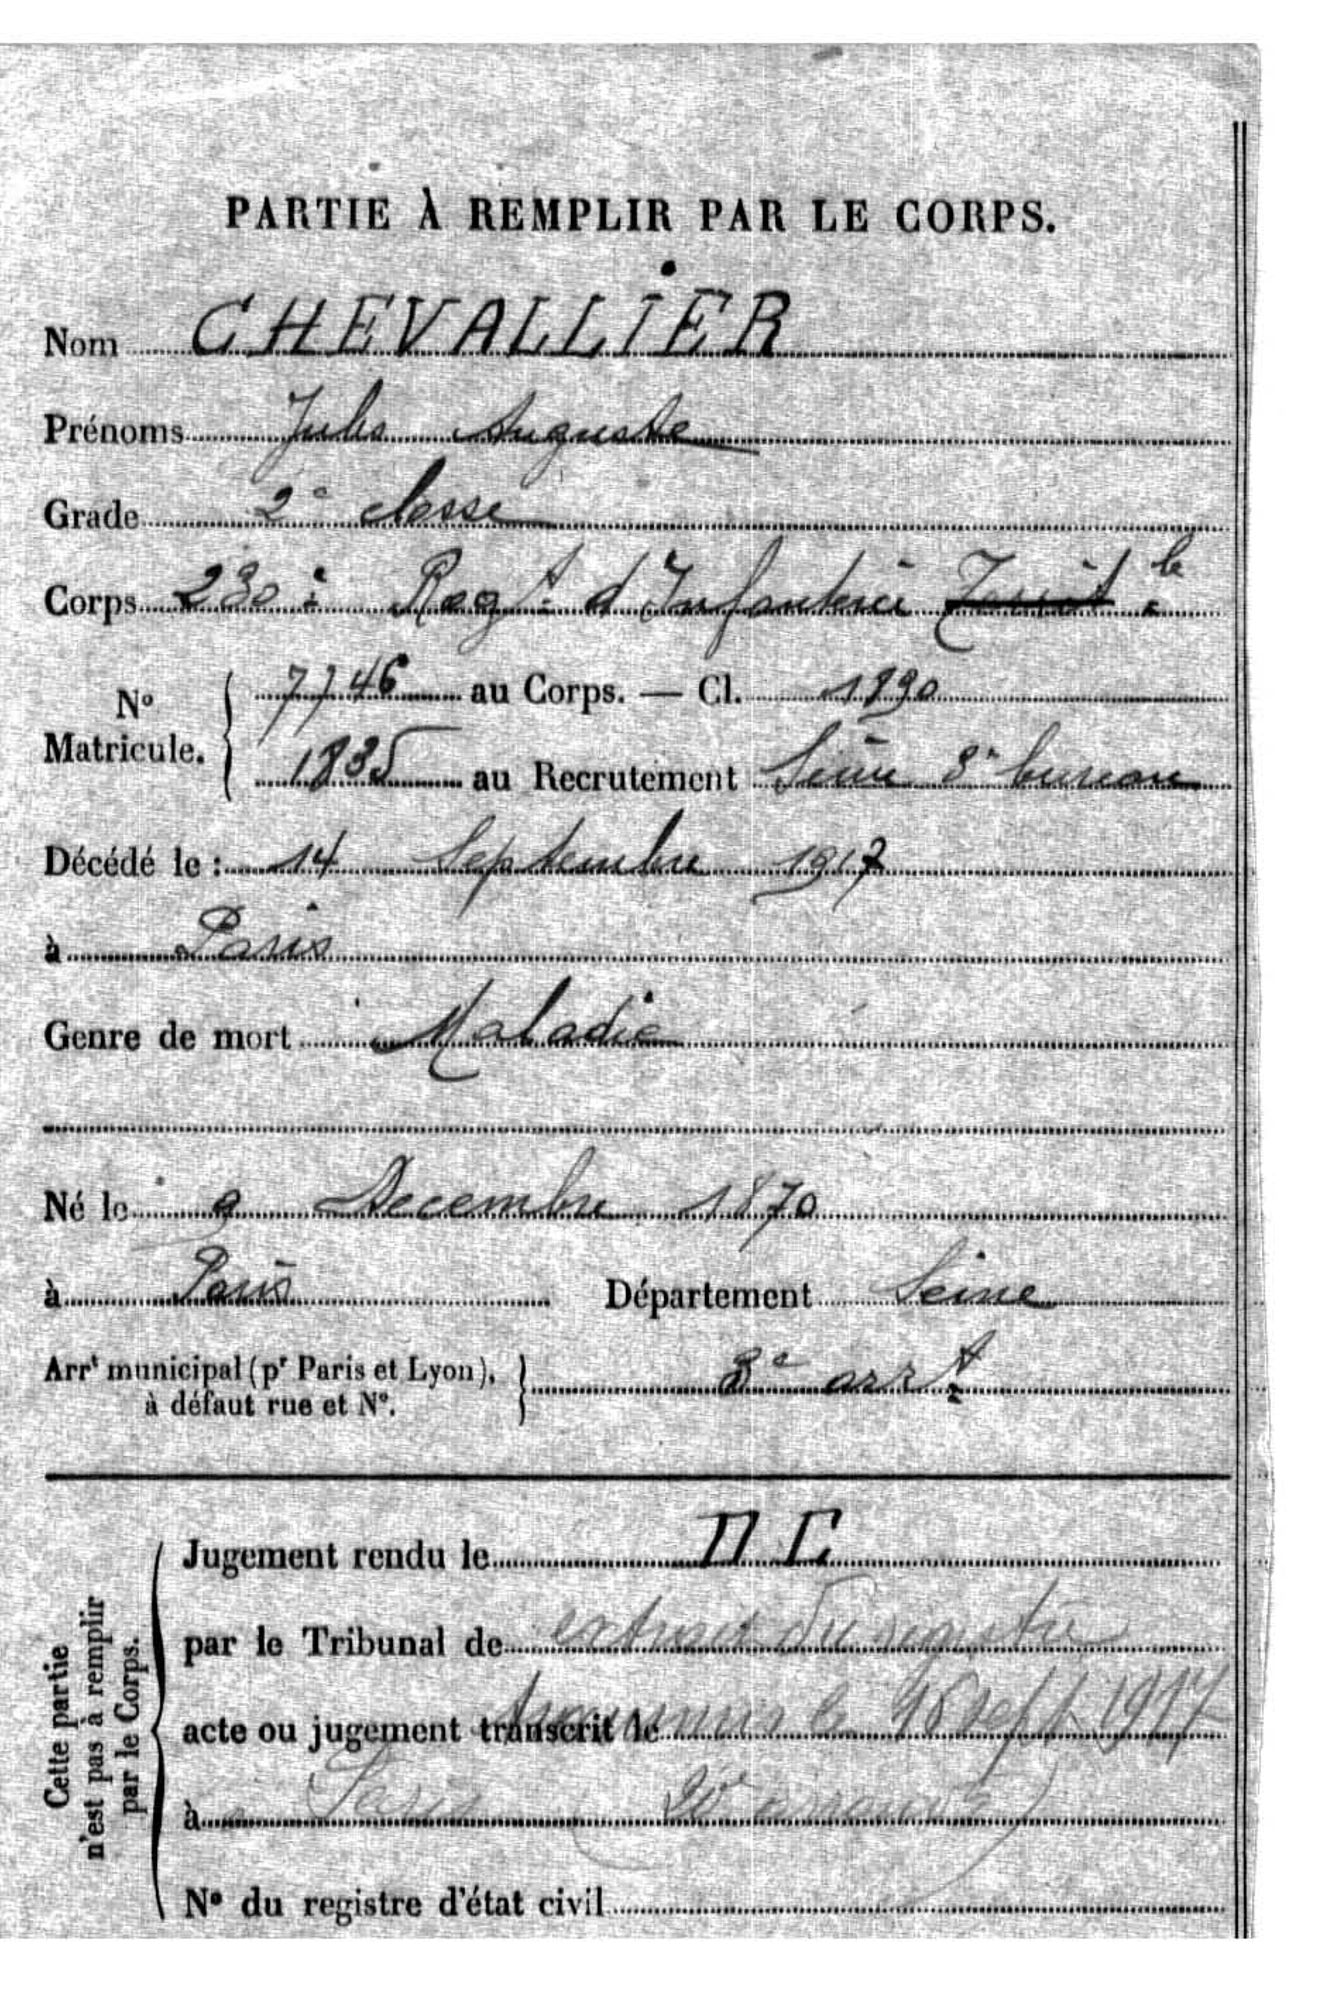 PARTIE À REMPLIR PAR LE CORPS.
Nom CHEVALLIER
Prénoms Jules Auguste
Grade 2e classe
Corps 230e Regt d'Infanterie Territle
No Matricule. 7746 au Corps. — Cl. 1890
1835 au Recrutement Seine 3e bureau
Décédé le : 14 Septembre 1917
à Paris
Genre de mort Maladie
Né le 9 Decembre 1870
à Paris Département Seine
Arrt municipal (pr Paris et Lyon), à défaut rue et No. 3e arrt
Cette partie n'est pas à remplir par le Corps.
Jugement rendu le
par le Tribunal de extrait du registre
acte ou jugement transcrit le sept 1917
à Paris (20e
No du registre d'état civil